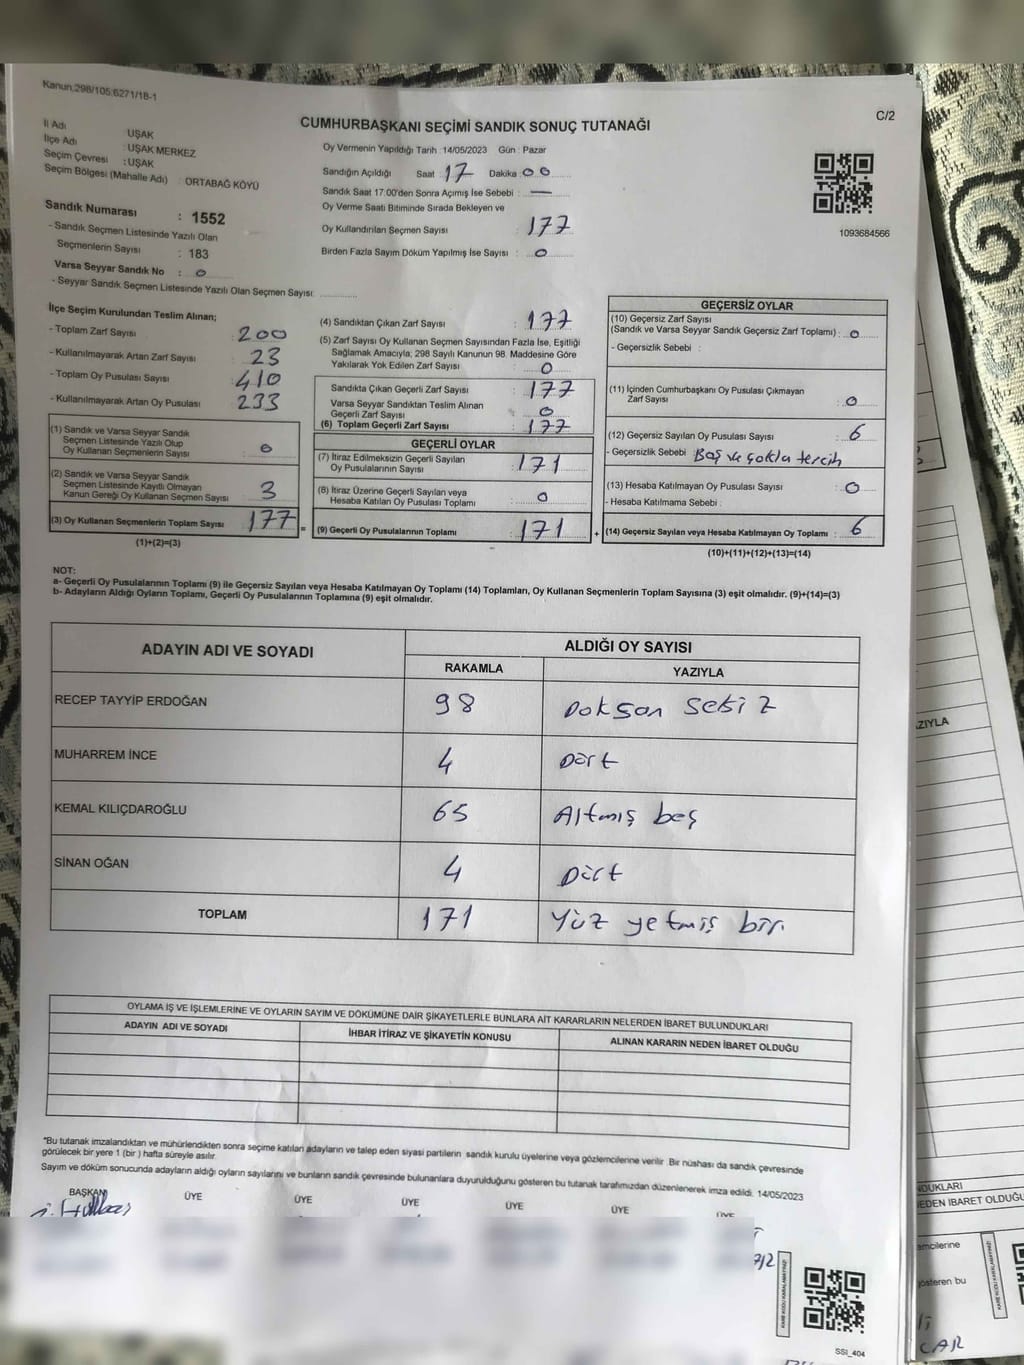 Kanun:298/105;6271/18-1
C/2
CUMHURBAŞKANI SEÇİMİ SANDIK SONUÇ TUTANAĞI
İl Adı : UŞAK
İlçe Adı : UŞAK MERKEZ
Seçim Çevresi : UŞAK
Seçim Bölgesi (Mahalle Adı) : ORTABAĞ KÖYÜ
Sandık Numarası : 1552
- Sandık Seçmen Listesinde Yazılı Olan
Seçmenlerin Sayısı : 183
Varsa Seyyar Sandık No : 0
- Seyyar Sandık Seçmen Listesinde Yazılı Olan Seçmen Sayısı:
Oy Vermenin Yapıldığı Tarih :14/05/2023 Gün : Pazar
Sandığın Açıldığı Saat : 17 Dakika : 00
Sandık Saat 17:00'den Sonra Açımış İse Sebebi : —
Oy Verme Saati Bitiminde Sırada Bekleyen ve
Oy Kullandırılan Seçmen Sayısı : 177
Birden Fazla Sayım Döküm Yapılmış İse Sayısı : 0
1093684566
İlçe Seçim Kurulundan Teslim Alınan;
- Toplam Zarf Sayısı : 200
- Kullanılmayarak Artan Zarf Sayısı : 23
- Toplam Oy Pusulası Sayısı : 410
- Kullanılmayarak Artan Oy Pusulası : 233
(1) Sandık ve Varsa Seyyar Sandık
Seçmen Listesinde Yazılı Olup
Oy Kullanan Seçmenlerin Sayısı : 0
(2) Sandık ve Varsa Seyyar Sandık
Seçmen Listesinde Kayıtlı Olmayan
Kanun Gereği Oy Kullanan Seçmen Sayısı : 3
(3) Oy Kullanan Seçmenlerin Toplam Sayısı : 177
(1)+(2)=(3)
=
(4) Sandıktan Çıkan Zarf Sayısı : 177
(5) Zarf Sayısı Oy Kullanan Seçmen Sayısından Fazla İse, Eşitliği
Sağlamak Amacıyla; 298 Sayılı Kanunun 98. Maddesine Göre
Yakılarak Yok Edilen Zarf Sayısı : 0
Sandıkta Çıkan Geçerli Zarf Sayısı : 177
Varsa Seyyar Sandıktan Teslim Alınan
Geçerli Zarf Sayısı : 0
(6) Toplam Geçerli Zarf Sayısı : 177
GEÇERLİ OYLAR
(7) İtiraz Edilmeksizin Geçerli Sayılan
Oy Pusulalarının Sayısı : 171
(8) İtiraz Üzerine Geçerli Sayılan veya
Hesaba Katılan Oy Pusulaları Toplamı : 0
(9) Geçerli Oy Pusulalarının Toplamı : 171
+
GEÇERSİZ OYLAR
(10) Geçersiz Zarf Sayısı
(Sandık ve Varsa Seyyar Sandık Geçersiz Zarf Toplamı) : 0
- Geçersizlik Sebebi :
(11) İçinden Cumhurbaşkanı Oy Pusulası Çıkmayan
Zarf Sayısı : 0
(12) Geçersiz Sayılan Oy Pusulası Sayısı : 6
- Geçersizlik Sebebi : Boş ve çokla tercih
(13) Hesaba Katılmayan Oy Pusulası Sayısı : 0
- Hesaba Katılmama Sebebi :
(14) Geçersiz Sayılan veya Hesaba Katılmayan Oy Toplamı : 6
(10)+(11)+(12)+(13)=(14)
NOT:
a- Geçerli Oy Pusulalarının Toplamı (9) ile Geçersiz Sayılan veya Hesaba Katılmayan Oy Toplamı (14) Toplamları, Oy Kullanan Seçmenlerin Toplam Sayısına (3) eşit olmalıdır. (9)+(14)=(3)
b- Adayların Aldığı Oyların Toplamı, Geçerli Oy Pusulalarının Toplamına (9) eşit olmalıdır.
ADAYIN ADI VE SOYADI ALDIĞI OY SAYISI
RAKAMLA YAZIYLA
RECEP TAYYİP ERDOĞAN 98 Doksan sekiz
MUHARREM İNCE 4 Dört
KEMAL KILIÇDAROĞLU 65 Altmış beş
SİNAN OĞAN 4 Dört
TOPLAM 171 Yüz yetmiş bir
OYLAMA İŞ VE İŞLEMLERİNE VE OYLARIN SAYIM VE DÖKÜMÜNE DAİR ŞİKAYETLERLE BUNLARA AİT KARARLARIN NELERDEN İBARET BULUNDUKLARI
ADAYIN ADI VE SOYADI İHBAR İTİRAZ VE ŞİKAYETİN KONUSU ALINAN KARARIN NEDEN İBARET OLDUĞU
*Bu tutanak imzalandıktan ve mühürlendikten sonra seçime katılan adayların ve talep eden siyasi partilerin sandık kurulu üyelerine veya gözlemcilerine verilir. Bir nüshası da sandık çevresinde
görülecek bir yere 1 (bir ) hafta süreyle asılır.
Sayım ve döküm sonucunda adayların aldığı oyların sayılarını ve bunların sandık çevresinde bulunanlara duyurulduğunu gösteren bu tutanak tarafımızdan düzenlenerek imza edildi. 14/05/2023
BAŞKAN ÜYE ÜYE ÜYE ÜYE ÜYE ÜYE
SSİ_404
AZIYLA
NDUKLARI
EDEN İBARET OLDUĞU
emcilerine
gösteren bu
CAR